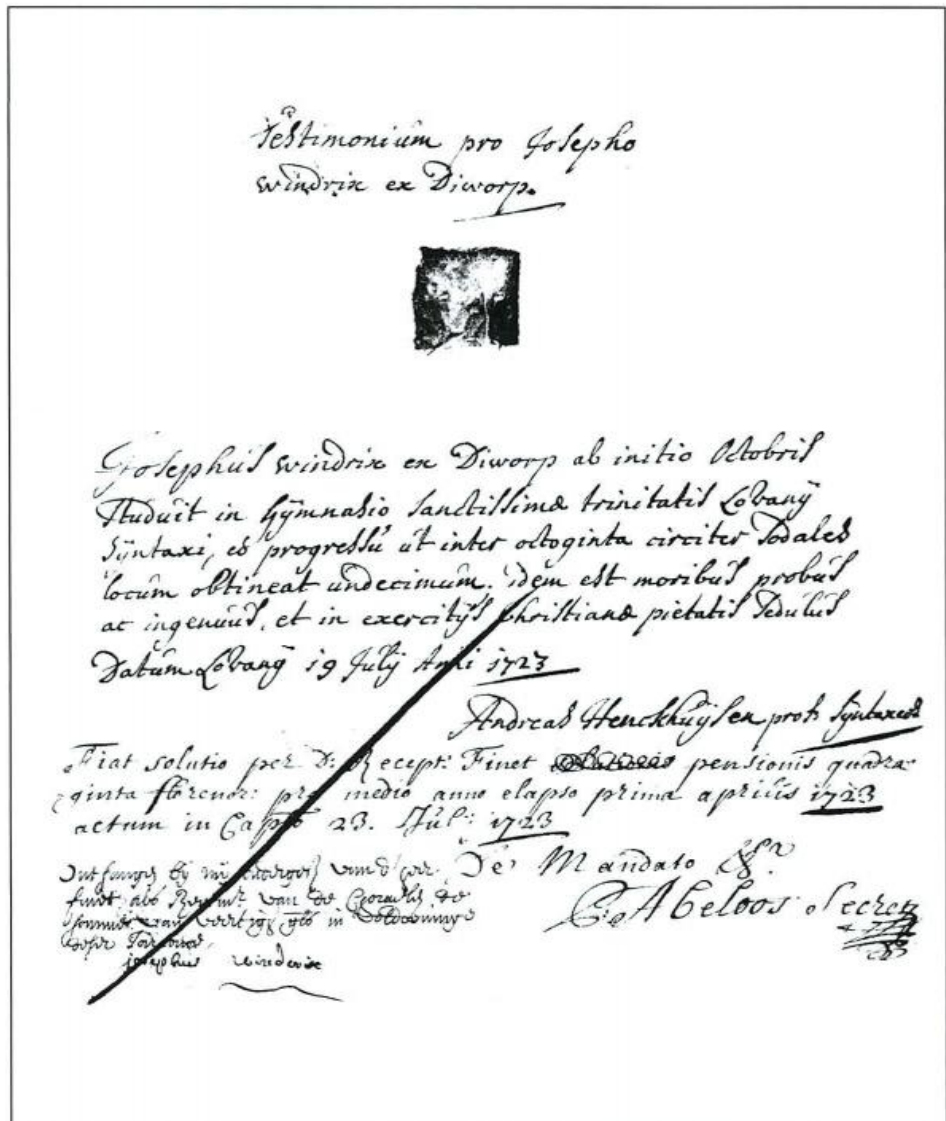 Testimonium pro Josepho
windrix ex Diworp.
Josephus windrix ex Diworp ab initio Octobris
studuit in Gÿmnasio sanctissimæ trinitatis Lovanÿ
Sÿntaxi, eo progressu ut inter octoginta circiter sodales
locum obtineat undecimum. idem est moribus probus
ac ingenuus, et in exercitÿs Christianæ pietatis sedulus
Datum Lovanÿ 19 Julÿ Anni 1723
Andreas Henckhuÿsen prof: sÿntaxeos
Fiat solutio per D: Recept: Finet pensionis quadra
ginta florenor: pro medio anno elapso prima aprilis 1723
actum in Cap<sup>lo</sup> 23. Jul: 1723
De Mandato &<sup>a</sup>
Abeloos Secret
Ontfangen bÿ mÿ van d'heer
finet als van de Choraelen de
somme van veertigh gls in voldoeninge
deser
josephus windrix